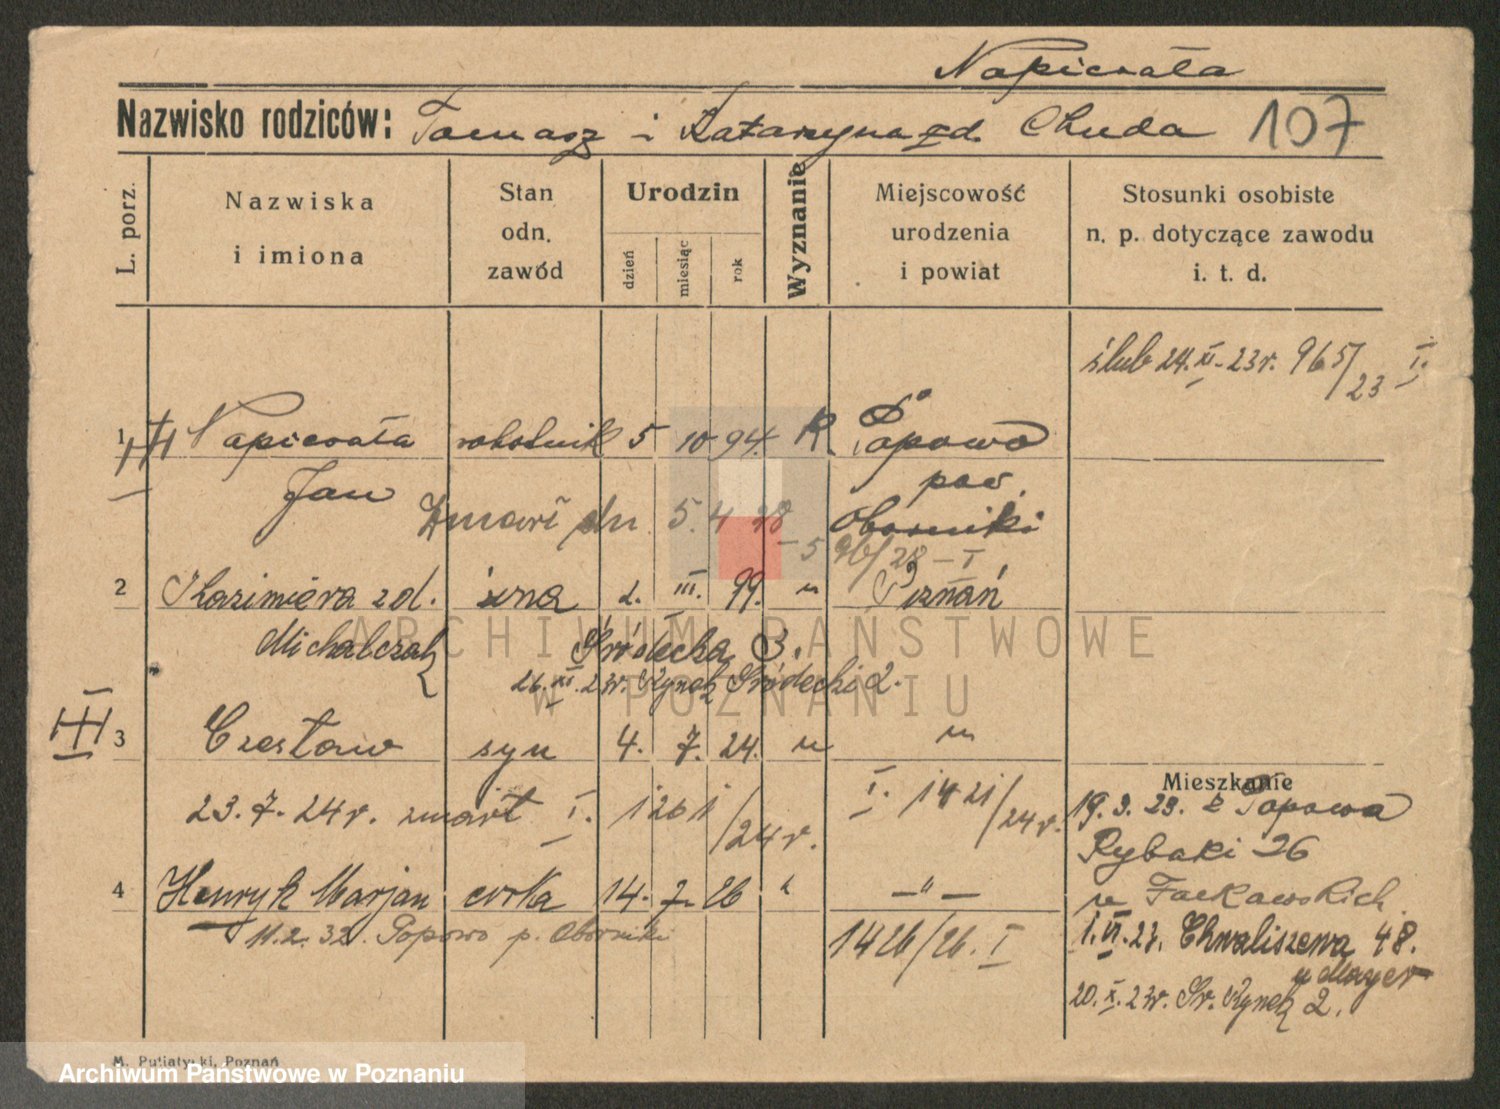 Napierała
Nazwisko rodziców: Tomasz i Katarzyna zd. Chuda 107
L. porz.
Nazwiska
i imiona
Stan
odn.
zawód
Urodzin
dzień
miesiąc
rok
Wyznanie
Miejscowość
urodzenia
i powiat
Stosunki osobiste
n. p. dotyczące zawodu
i. t. d.
ślub 24.XI.23r. 965/23 I.
1 Napierała robotnik 5 10 94. K Popowo
Jan pow.
Zmarł dn 5.4 28 Oborniki
596/28 – I
2 Kazimiera zd. żona 2. III. 99. " Poznań
Michalczak Śródecka 3.
26.XI.23r. Rynek Śródecki 2.
III 3 Czesław syn 4. 7. 24. " "
23.7.24r. zmarł I. 1261/24r. I. 1421/24r.
4 Henryk Marjan córka 14. 7. 26 " —"—
11.2.32. Popowo p. Oborniki 1426/26. I
Mieszkanie
19.3.23. z Popowa
Rybaki 26
1.VI.23. Chwaliszewo 48.
u Mayer
20.X.23r. Śr. Rynek 2.
M. Putiatycki, Poznań
ARCHIWUM PAŃSTWOWE
W POZNANIU
Archiwum Państwowe w Poznaniu